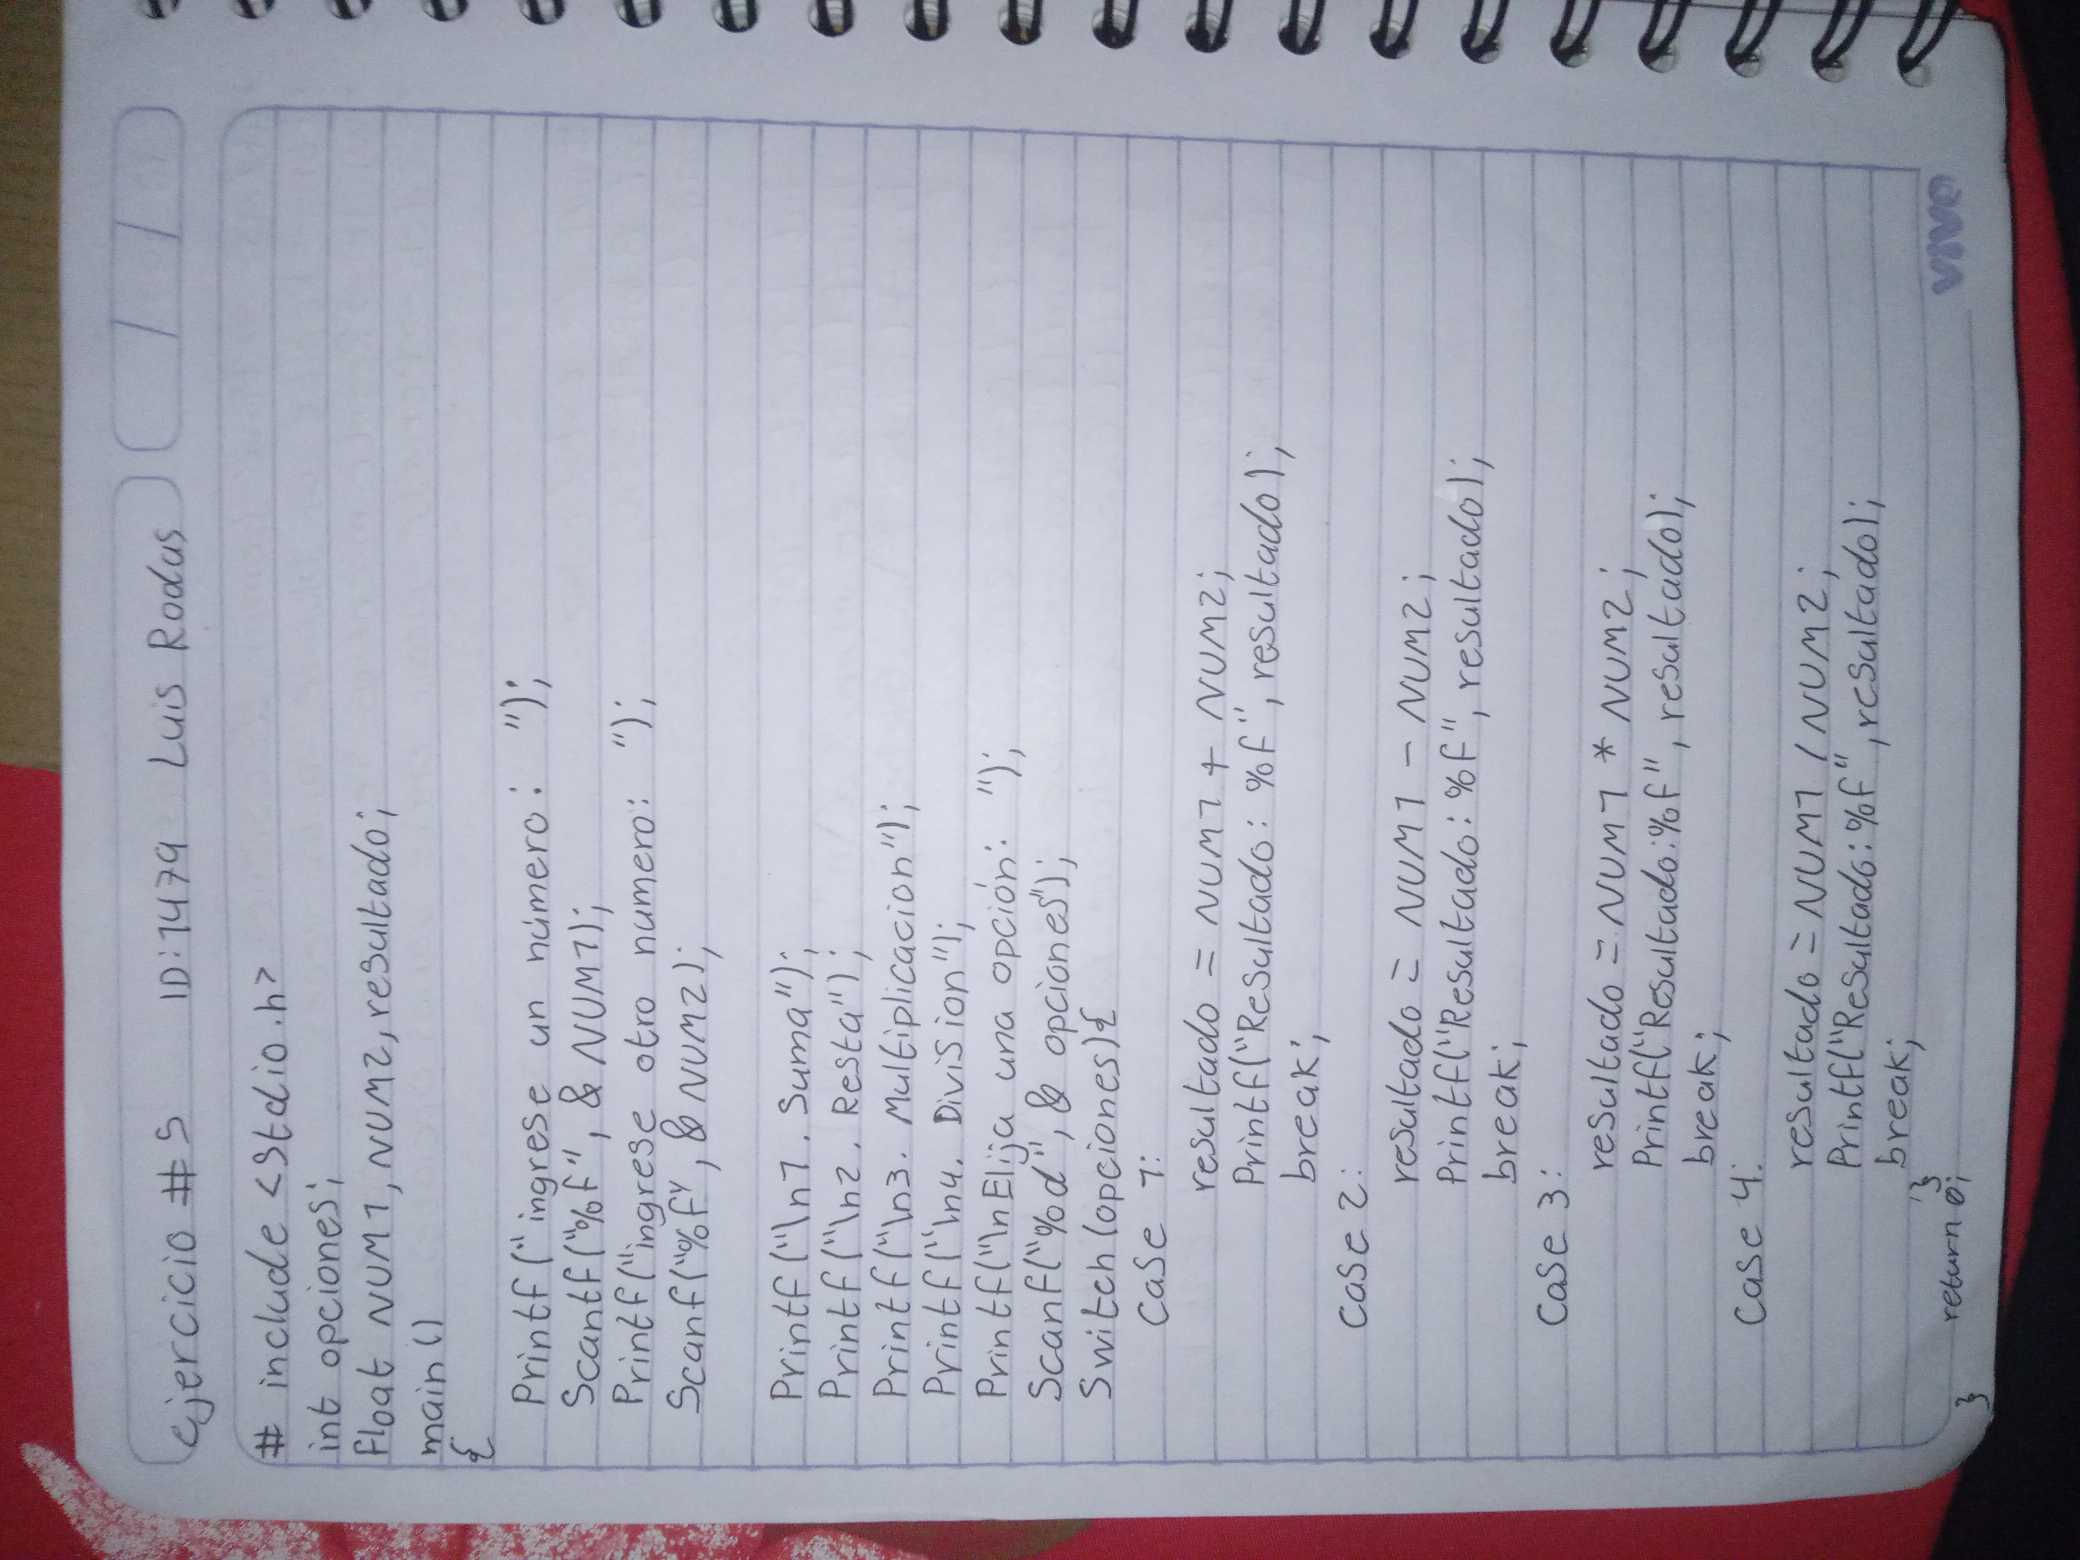 Ejercicio #5 ID:1479 Luis Rodas
# include <stdio.h>
int opciones;
float NUM1, NUM2, resultado;
main()
{
Printf("ingrese un número: ");
Scantf("%f", & NUM1);
Printf("ingrese otro numero: ");
Scanf("%f", & NUM2);
Printf("\n1. Suma");
Printf("\n2. Resta");
Printf("\n3. Multiplicacion");
Printf("\n4. Division");
Printf("\nElija una opción: ");
Scanf("%d", & opciones");
Switch(opciones){
Case 1:
resultado = NUM1 + NUM2;
Printf("Resultado: %f", resultado);
break;
Case 2:
resultado = NUM1 - NUM2;
Printf("Resultado: %f", resultado);
break;
Case 3:
resultado = NUM1 * NUM2;
Printf("Resultado: %f", resultado);
break;
Case 4:
resultado = NUM1 / NUM2;
Printf("Resultado: %f", resultado);
break;
}
return 0;
}
VIVO